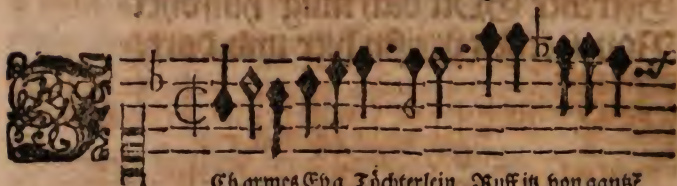 Ch armes Eva Töchterlein Ruff itz von gantz